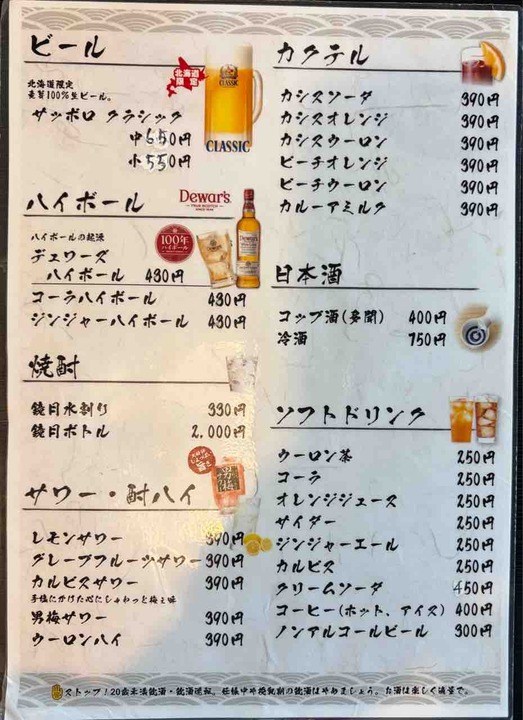 ビール
北海道限定
麦芽100%生ビール。
北海道
限定
サッポロ クラシック
中650円
小550円
CLASSIC
CLASSIC
ハイボール
Dewar's
ハイボールの起源
100年
ハイボール
デュワーズ
ハイボール 430円
コーラハイボール 430円
ジンジャーハイボール 430円
焼酎
鏡月水割り 330円
鏡月ボトル 2,000円
サワー・酎ハイ
男梅
レモンサワー 390円
グレープフルーツサワー 390円
カルピスサワー 390円
手塩にかけた心にしゅわっと梅え味
男梅サワー 390円
ウーロンハイ 390円
カクテル
カシスソーダ 390円
カシスオレンジ 390円
カシスウーロン 390円
ピーチオレンジ 390円
ピーチウーロン 390円
カルーアミルク 390円
日本酒
コップ酒(多聞) 400円
冷酒 750円
ソフトドリンク
ウーロン茶 250円
コーラ 250円
オレンジジュース 250円
サイダー 250円
ジンジャーエール 250円
カルピス 250円
クリームソーダ 450円
コーヒー(ホット、アイス) 400円
ノンアルコールビール 300円
ストップ!20歳未満飲酒・飲酒運転。妊娠中や授乳期の飲酒はやめましょう。お酒は楽しく適量で。